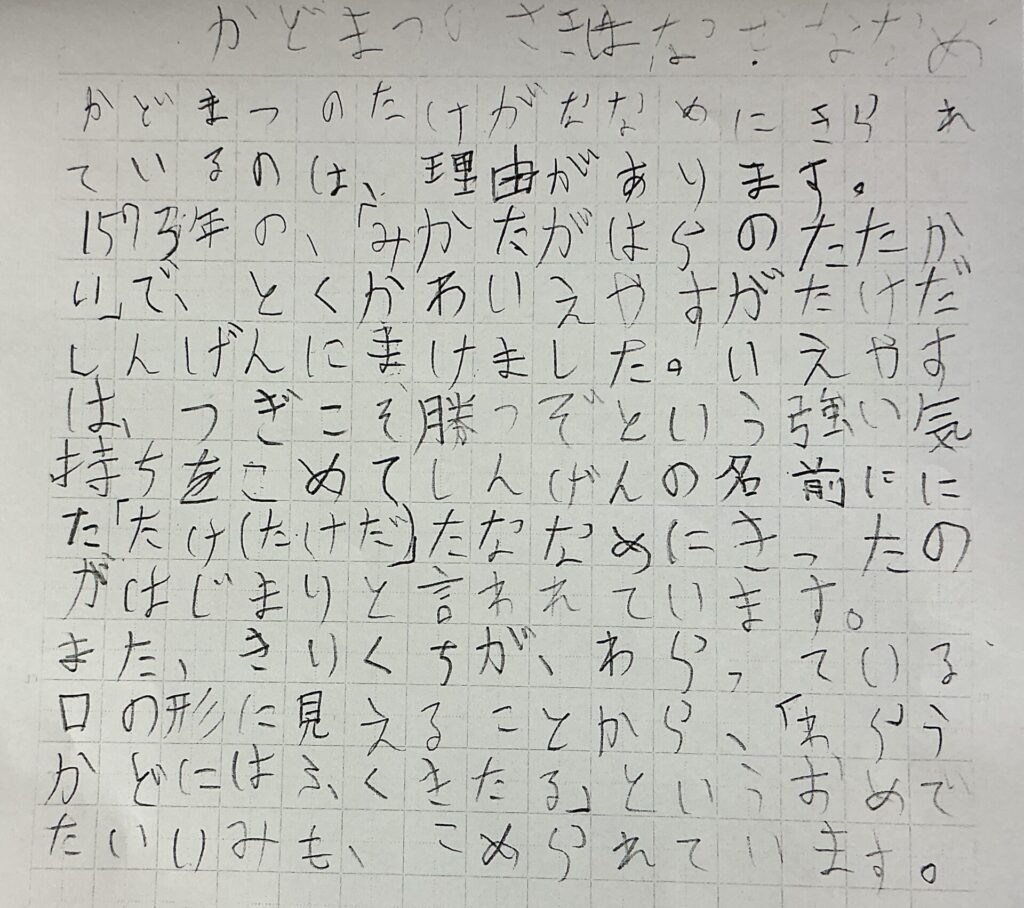 かどまつのさきはなぜななめ
かどまつのたけがななめにきられ
ているのは、理由があります。
1573年の、「みかたがはらのたたか
い」で、とくかわいえやすがたけだ
しんげんにまけました。いえやす
は、つぎこそ勝つぞという強い気
持ちをこめてしんげんの名前にに
た「たけ(たけだ)」たななめにきったの
がはじまりと言われています。
また、きりくちが、わらっている
口の形に見えることから、「わらう
かどにはふくきたる」というおめで
たいいみも、こめられています。